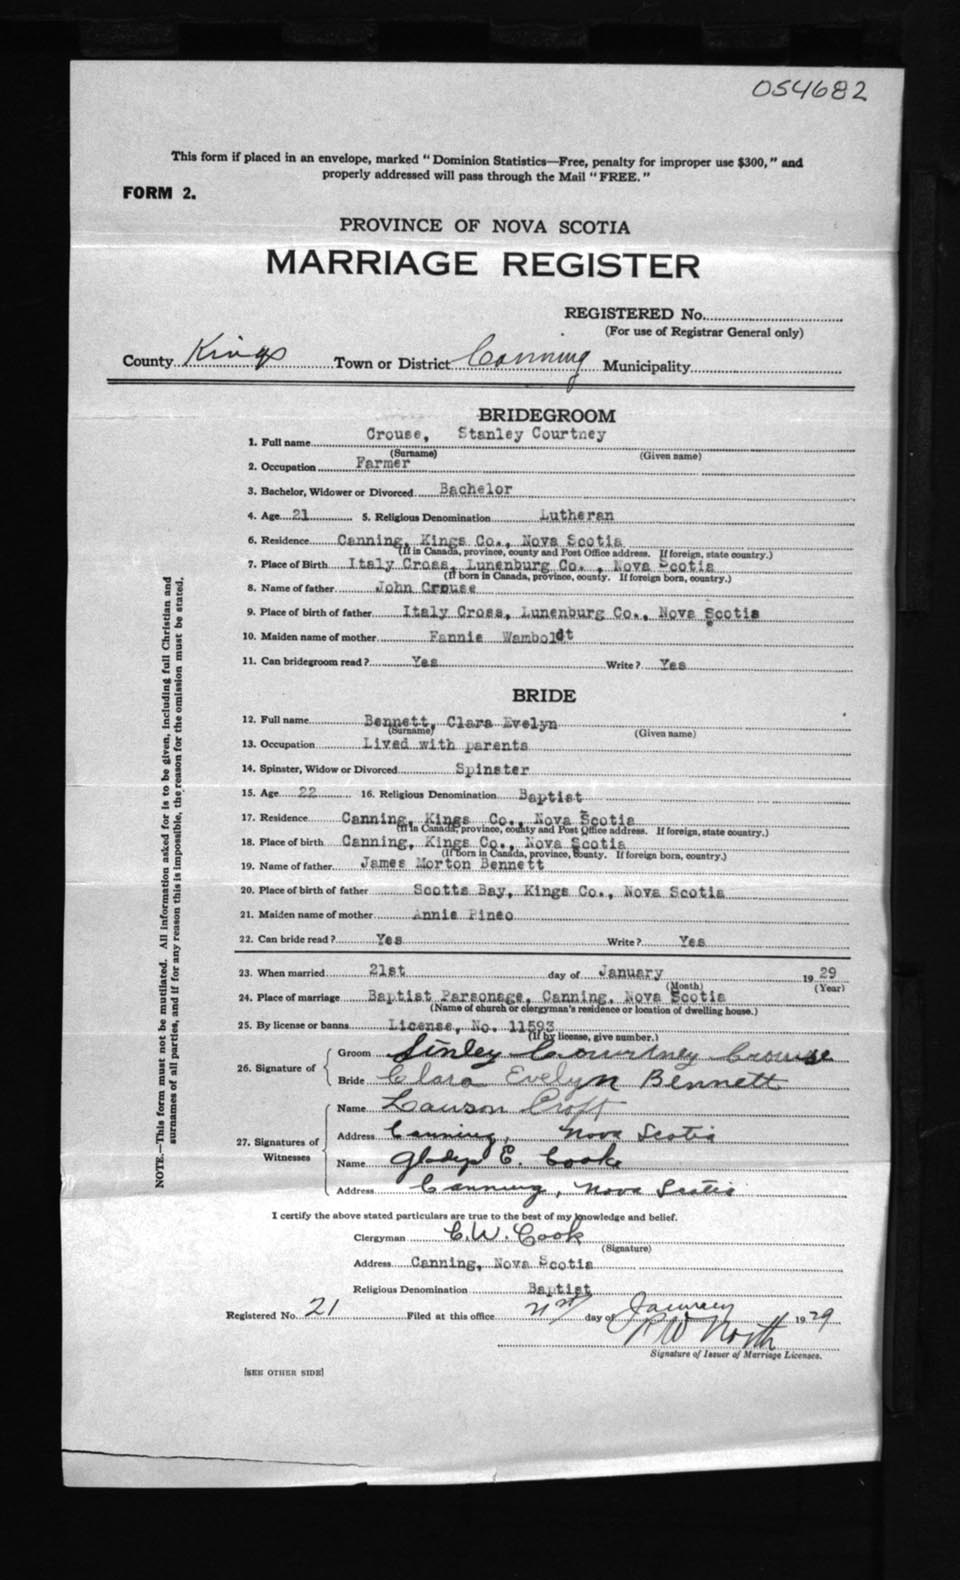 054682
This form if placed in an envelope, marked "Dominion Statistics—Free, penalty for improper use $300," and
properly addressed will pass through the Mail "FREE."
FORM 2.
PROVINCE OF NOVA SCOTIA
MARRIAGE REGISTER
REGISTERED No.
(For use of Registrar General only)
County Kings Town or District Canning Municipality
BRIDEGROOM
1. Full name Crouse, Stanley Courtney
(Surname) (Given name)
2. Occupation Farmer
3. Bachelor, Widower or Divorced Bachelor
4. Age 21 5. Religious Denomination Lutheran
6. Residence Canning, Kings Co., Nova Scotia
(If in Canada, province, county and Post Office address. If foreign, state country.)
7. Place of Birth Italy Cross, Lunenburg Co., Nova Scotia
(If born in Canada, province, county. If foreign born, country.)
8. Name of father John Crouse
9. Place of birth of father Italy Cross, Lunenburg Co., Nova Scotia
10. Maiden name of mother Fannie Wamboldt
11. Can bridegroom read? Yes Write? Yes
BRIDE
12. Full name Bennett, Clara Evelyn
(Surname) (Given name)
13. Occupation Lived with parents
14. Spinster, Widow or Divorced Spinster
15. Age 22 16. Religious Denomination Baptist
17. Residence Canning, Kings Co., Nova Scotia
(If in Canada, province, county and Post Office address. If foreign, state country.)
18. Place of birth Canning, Kings Co., Nova Scotia
(If born in Canada, province, county. If foreign born, country.)
19. Name of father James Morton Bennett
20. Place of birth of father Scotts Bay, Kings Co., Nova Scotia
21. Maiden name of mother Annie Pineo
22. Can bride read? Yes Write? Yes
23. When married 21st day of January 1929
(Month) (Year)
24. Place of marriage Baptist Parsonage, Canning, Nova Scotia
(Name of church or clergyman's residence or location of dwelling house.)
25. By license or banns License, No. 11593
(If by license, give number.)
26. Signature of
Groom Stnley Courtney Crouse
Bride Clara Evelyn Bennett
27. Signatures of Witnesses
Name Lawson Croft
Address Canning, Nova Scotia
Name Gladys E. Cooke
Address Canning, Nova Scotia
I certify the above stated particulars are true to the best of my knowledge and belief.
Clergyman C. W. Cook
(Signature)
Address Canning, Nova Scotia
Religious Denomination Baptist
Registered No. 21 Filed at this office 21st day of January 1929
R W North
Signature of Issuer of Marriage Licenses.
[SEE OTHER SIDE]
NOTE.—This form must not be mutilated. All information asked for is to be given, including full Christian and
surnames of all parties, and if for any reason this is impossible, the reason for the omission must be stated.